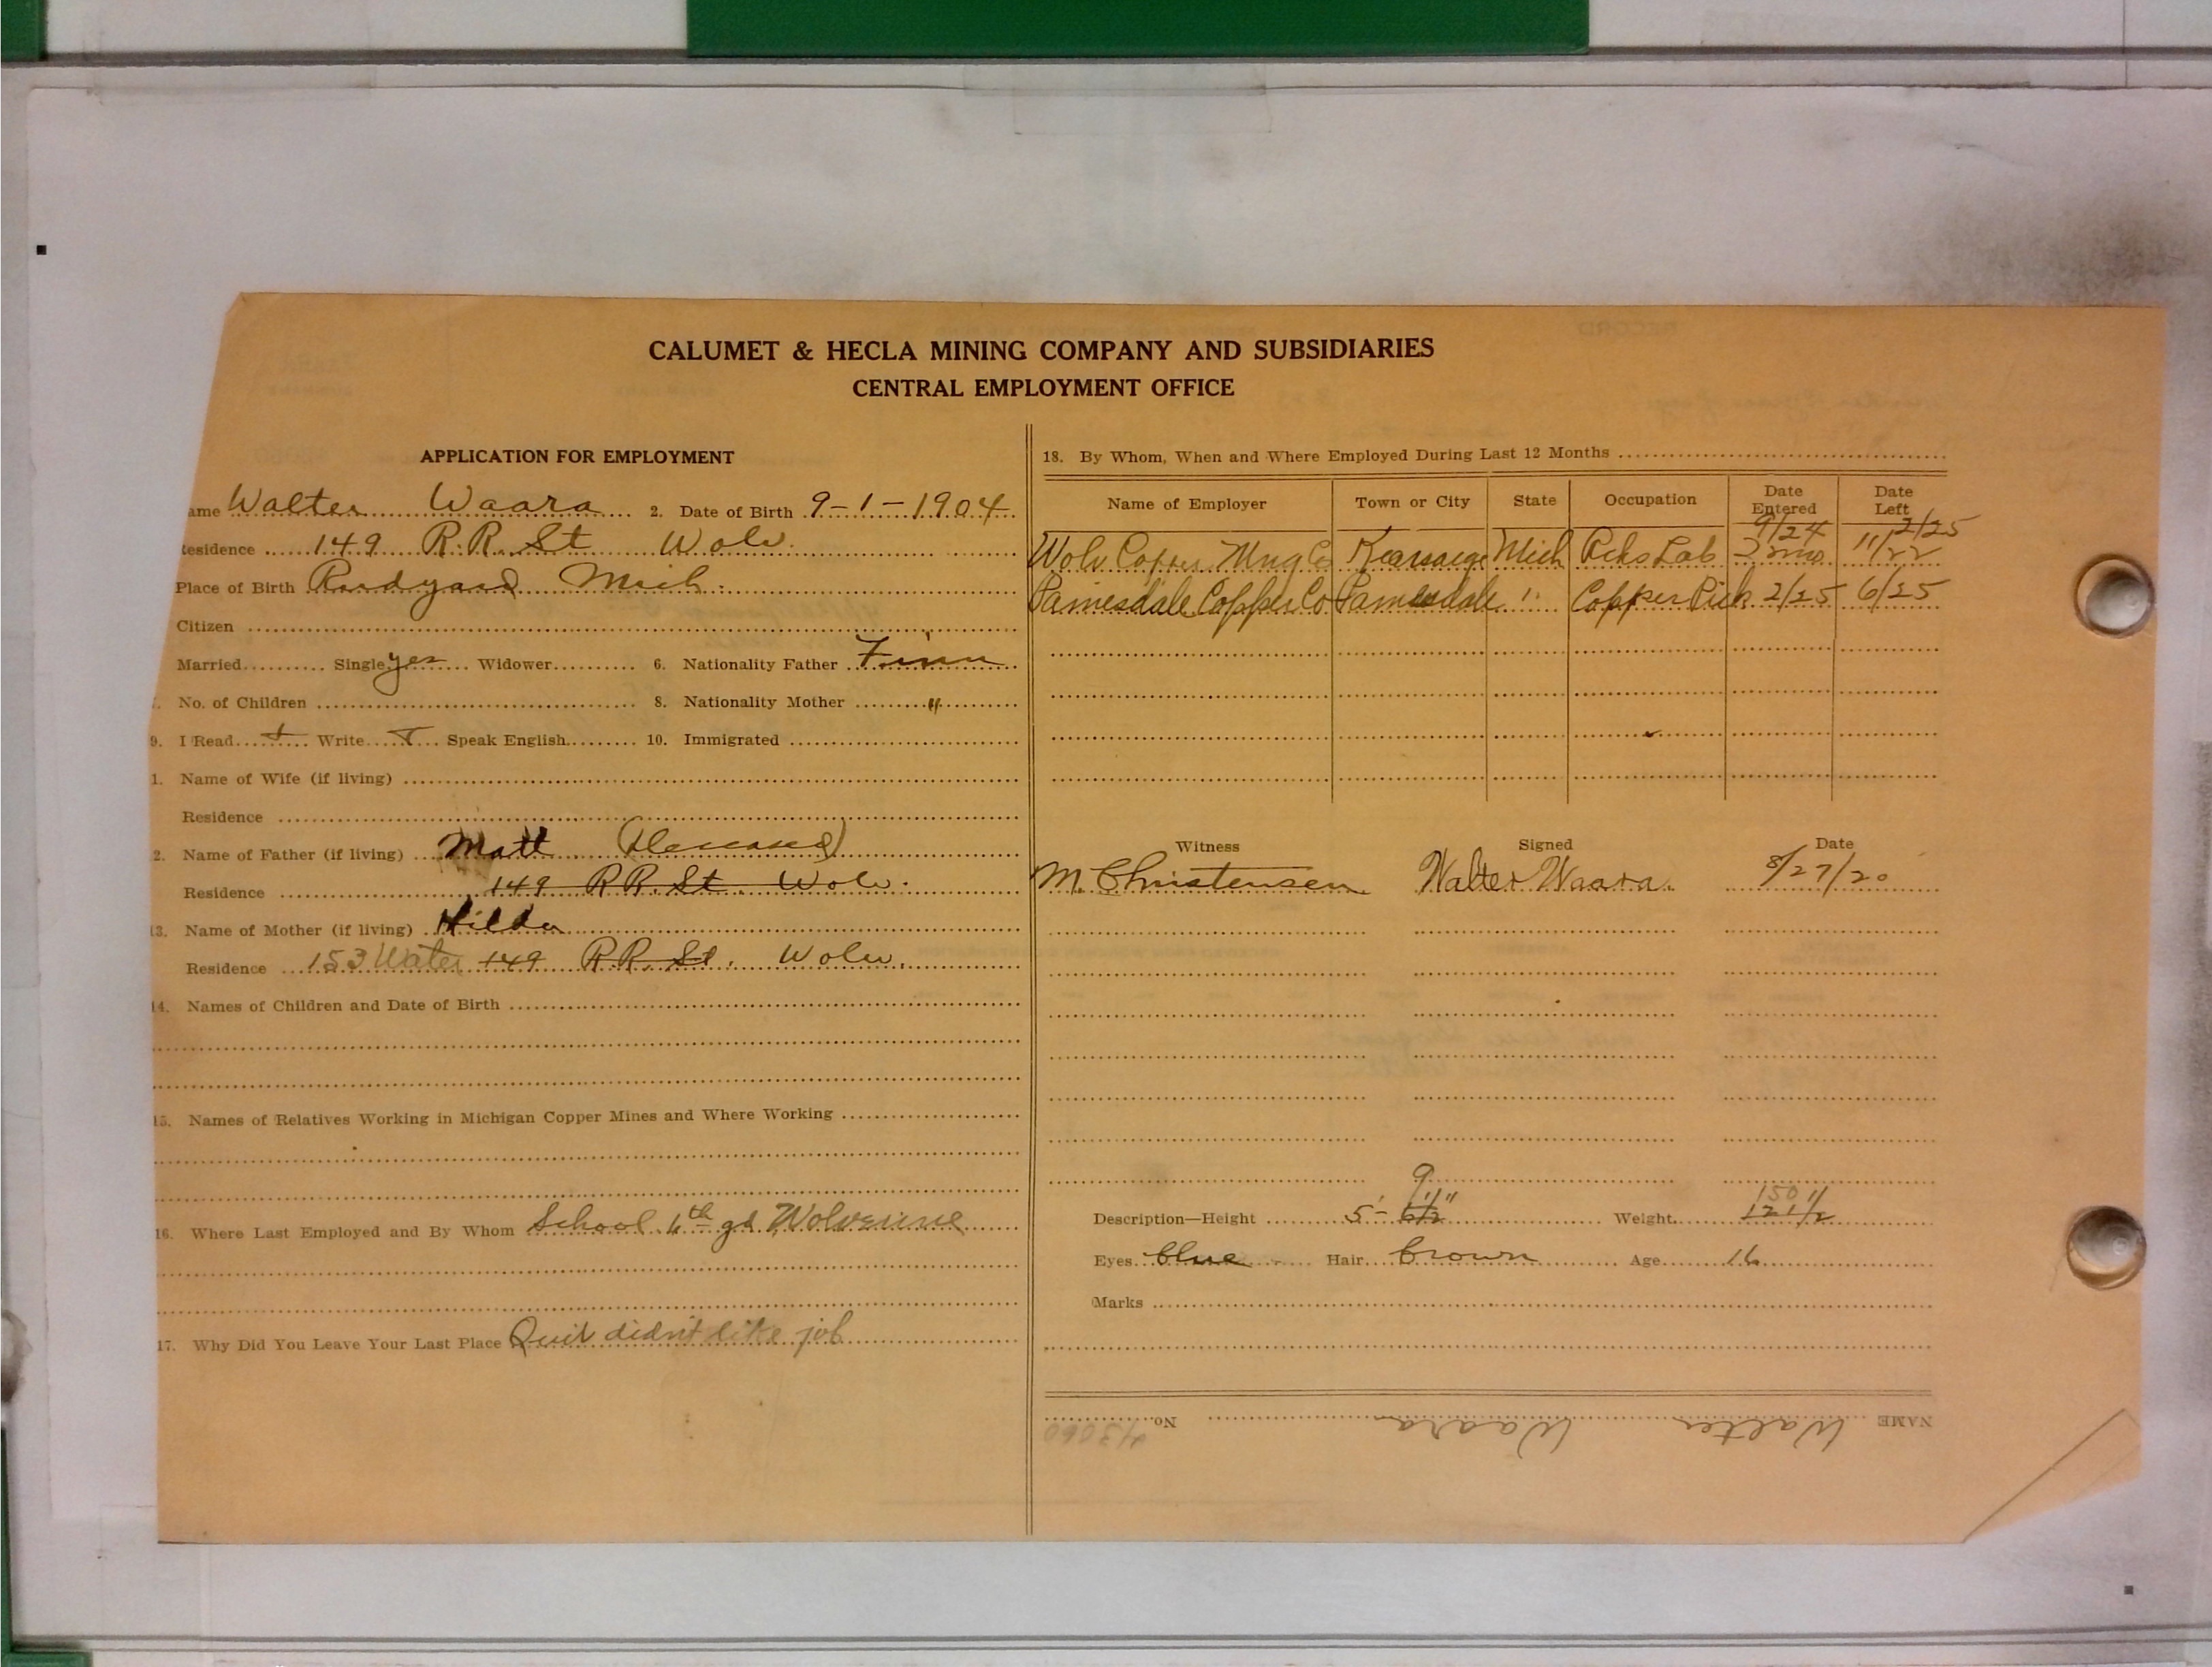 CALUMET & HECLA MINING COMPANY AND SUBSIDIARIES
CENTRAL EMPLOYMENT OFFICE
APPLICATION FOR EMPLOYMENT
ame Walter Waara 2. Date of Birth 9-1-1904
Residence 149 R.R. St Wolv.
Place of Birth Rudyard Mich.
Citizen
Married Single yes Widower 6. Nationality Father Finn
No. of Children 8. Nationality Mother "
9. I Read Write Speak English 10. Immigrated
1. Name of Wife (if living)
Residence
2. Name of Father (if living) Matt (Deceased)
Residence 149 R.R. St. Wolv.
13. Name of Mother (if living) Hilda
Residence 153 Water 149 R.R. St. Wolv.
14. Names of Children and Date of Birth
15. Names of Relatives Working in Michigan Copper Mines and Where Working
16. Where Last Employed and By Whom School gd Wolverine
17. Why Did You Leave Your Last Place Quit didn't like job
18. By Whom, When and Where Employed During Last 12 Months
Name of Employer Town or City State Occupation Date Entered Date Left
9/24 2/25
Wolv Copper Mng Co Kearsarge Mich Lab 11/22
Painesdale Copper Co Painesdale " Copper Pick 2/25 6/25
Witness Signed Date
M. Christensen Walter Waara 8/27/20
9 150
Description—Height 5'- 6 1/2" Weight 121 1/2
Eyes blue Hair brown Age 16
Marks
NAME Walter Waara No. 43060